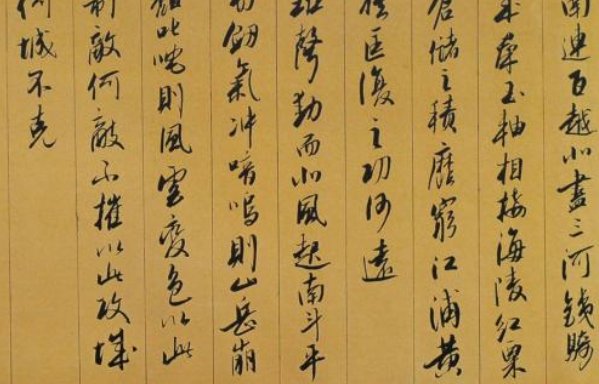 南連百越北盡三河鐵騎
成羣玉軸相接海陵紅粟
倉儲之積靡窮江浦黃
旗匡復之功何遠
班聲動而北風起南斗平
劒氣冲喑嗚則山岳崩
頹叱咤則風雲變色以此
制敵何敵不摧以此攻城
何城不克